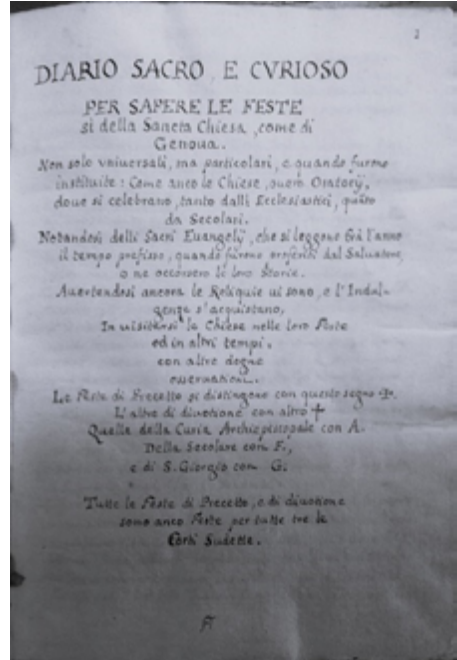 2
DIARIO SACRO, E CVRIOSO
PER SAPERE LE FESTE
si della Sancta Chiesa, come di
Genoua.
Non solo vniuersali, ma particolari, e quando furono
instituite: Come anco le Chiese, ouero Oratorij,
doue si celebrano, tanto dalli Ecclesiastici, quãto
da Secolari.
Notandosi delli Sacri Euangelij, che si leggono frà l'anno
il tempo prefisso, quando furono proferiti dal Saluatore,
o ne occorsero le loro Storie.
Auertendosi ancora le Reliquie ui sono, e l'Indul-
genze s'acquistano,
In uisitarsi le Chiese nelle loro Feste
ed in altri tempi.
con altre degne
osseruationi.
Le Feste di Precetto si distingono con questo segno ✠.
L'altre di diuotione con altro +
Quelle della Curia Archiepiscopale con A.
Della Secolare con F.,
e di S. Giorgio con G.
Tutte le Feste di Precetto, e di diuotione
sono anco Feste per tutte tre le
Corti Sudette.